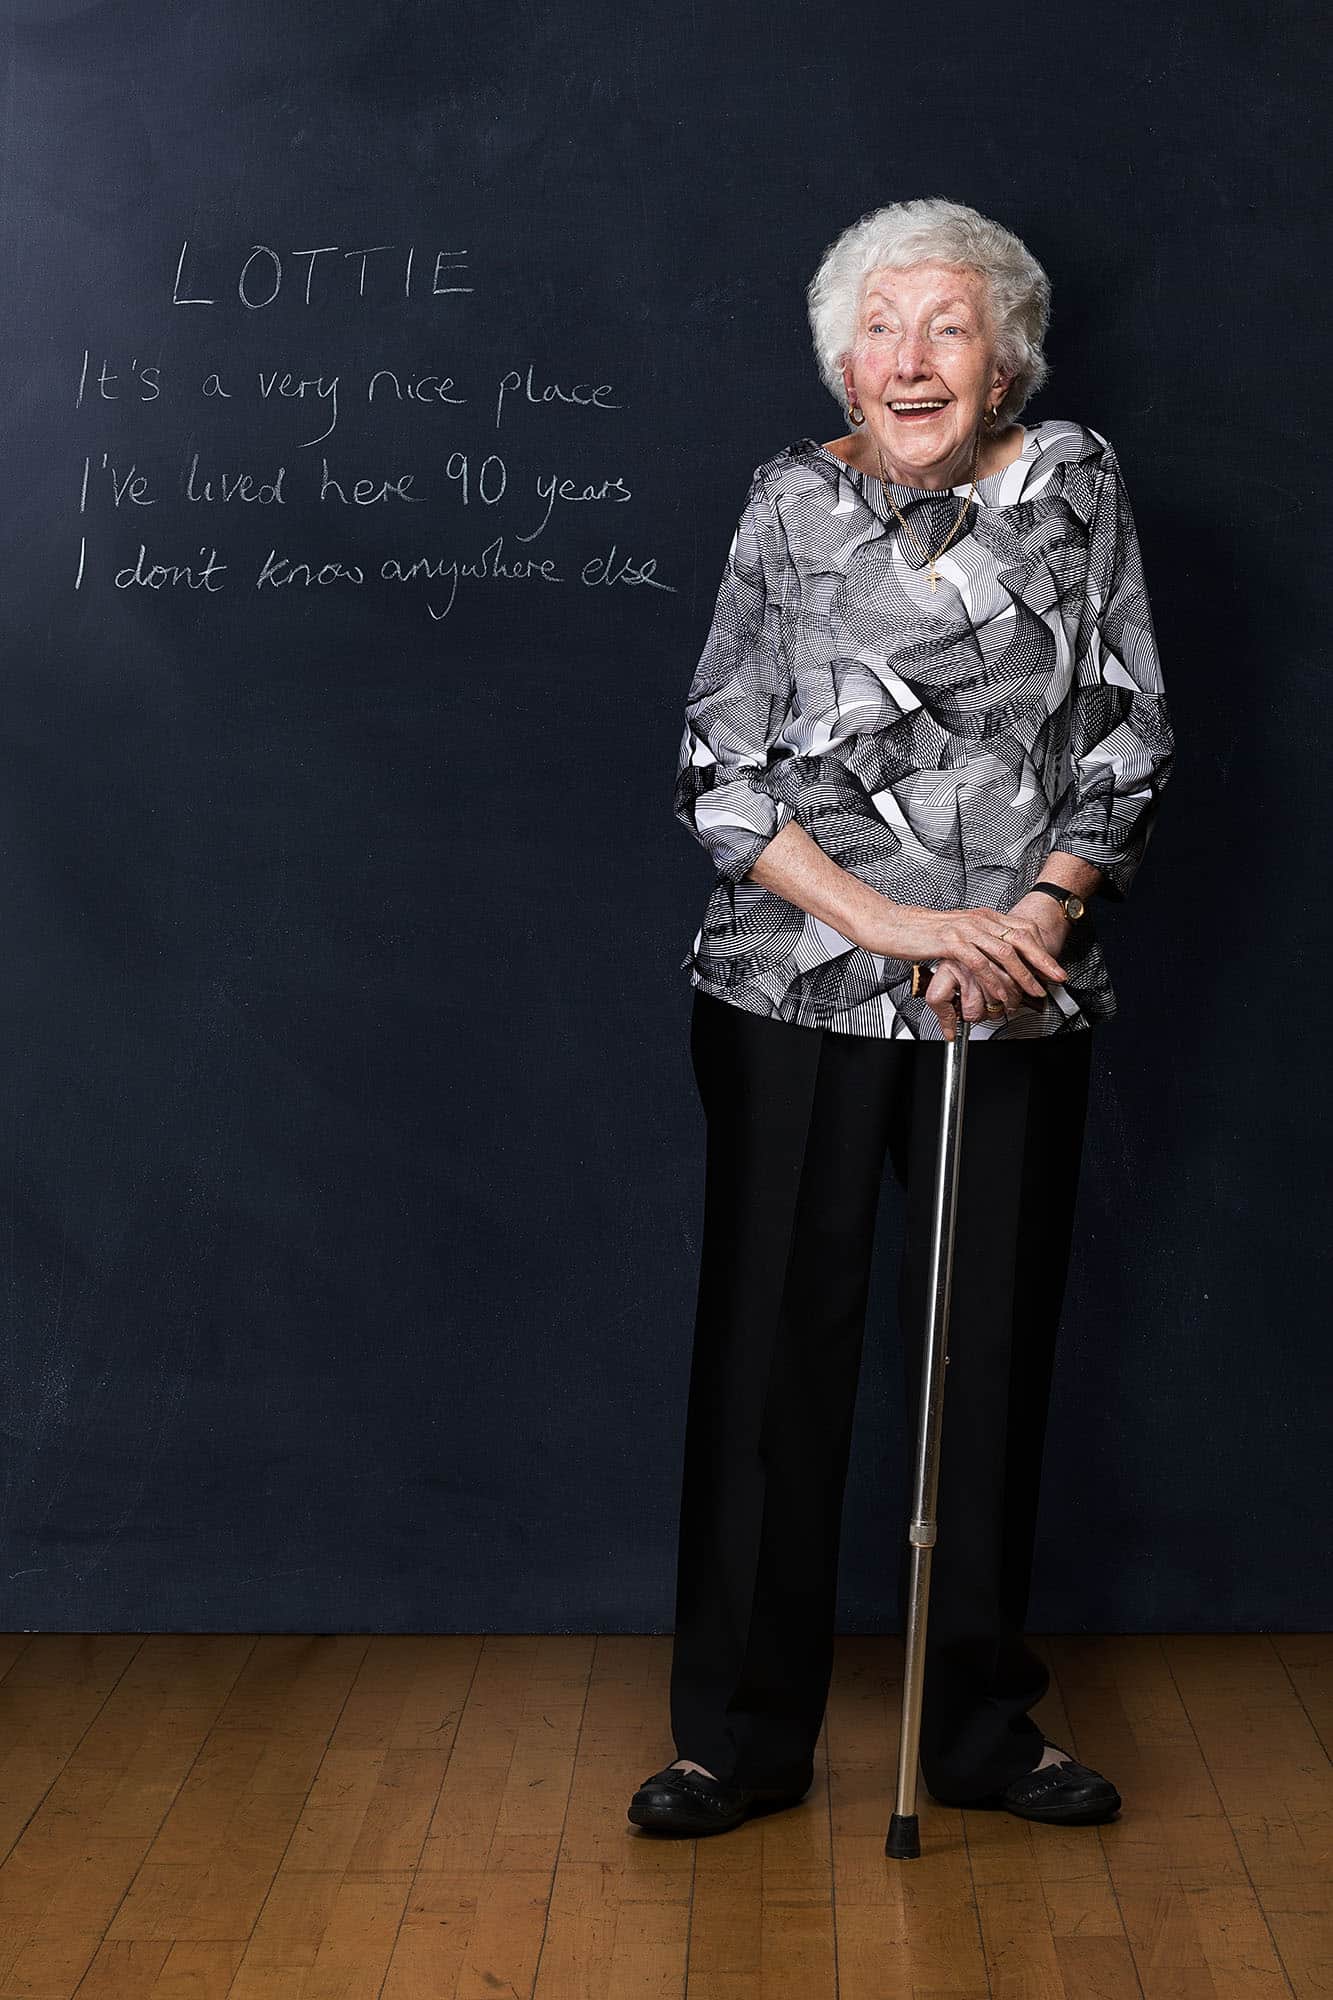 LOTTIE
It's a very nice place
I've lived here 90 years
I don't know anywhere else